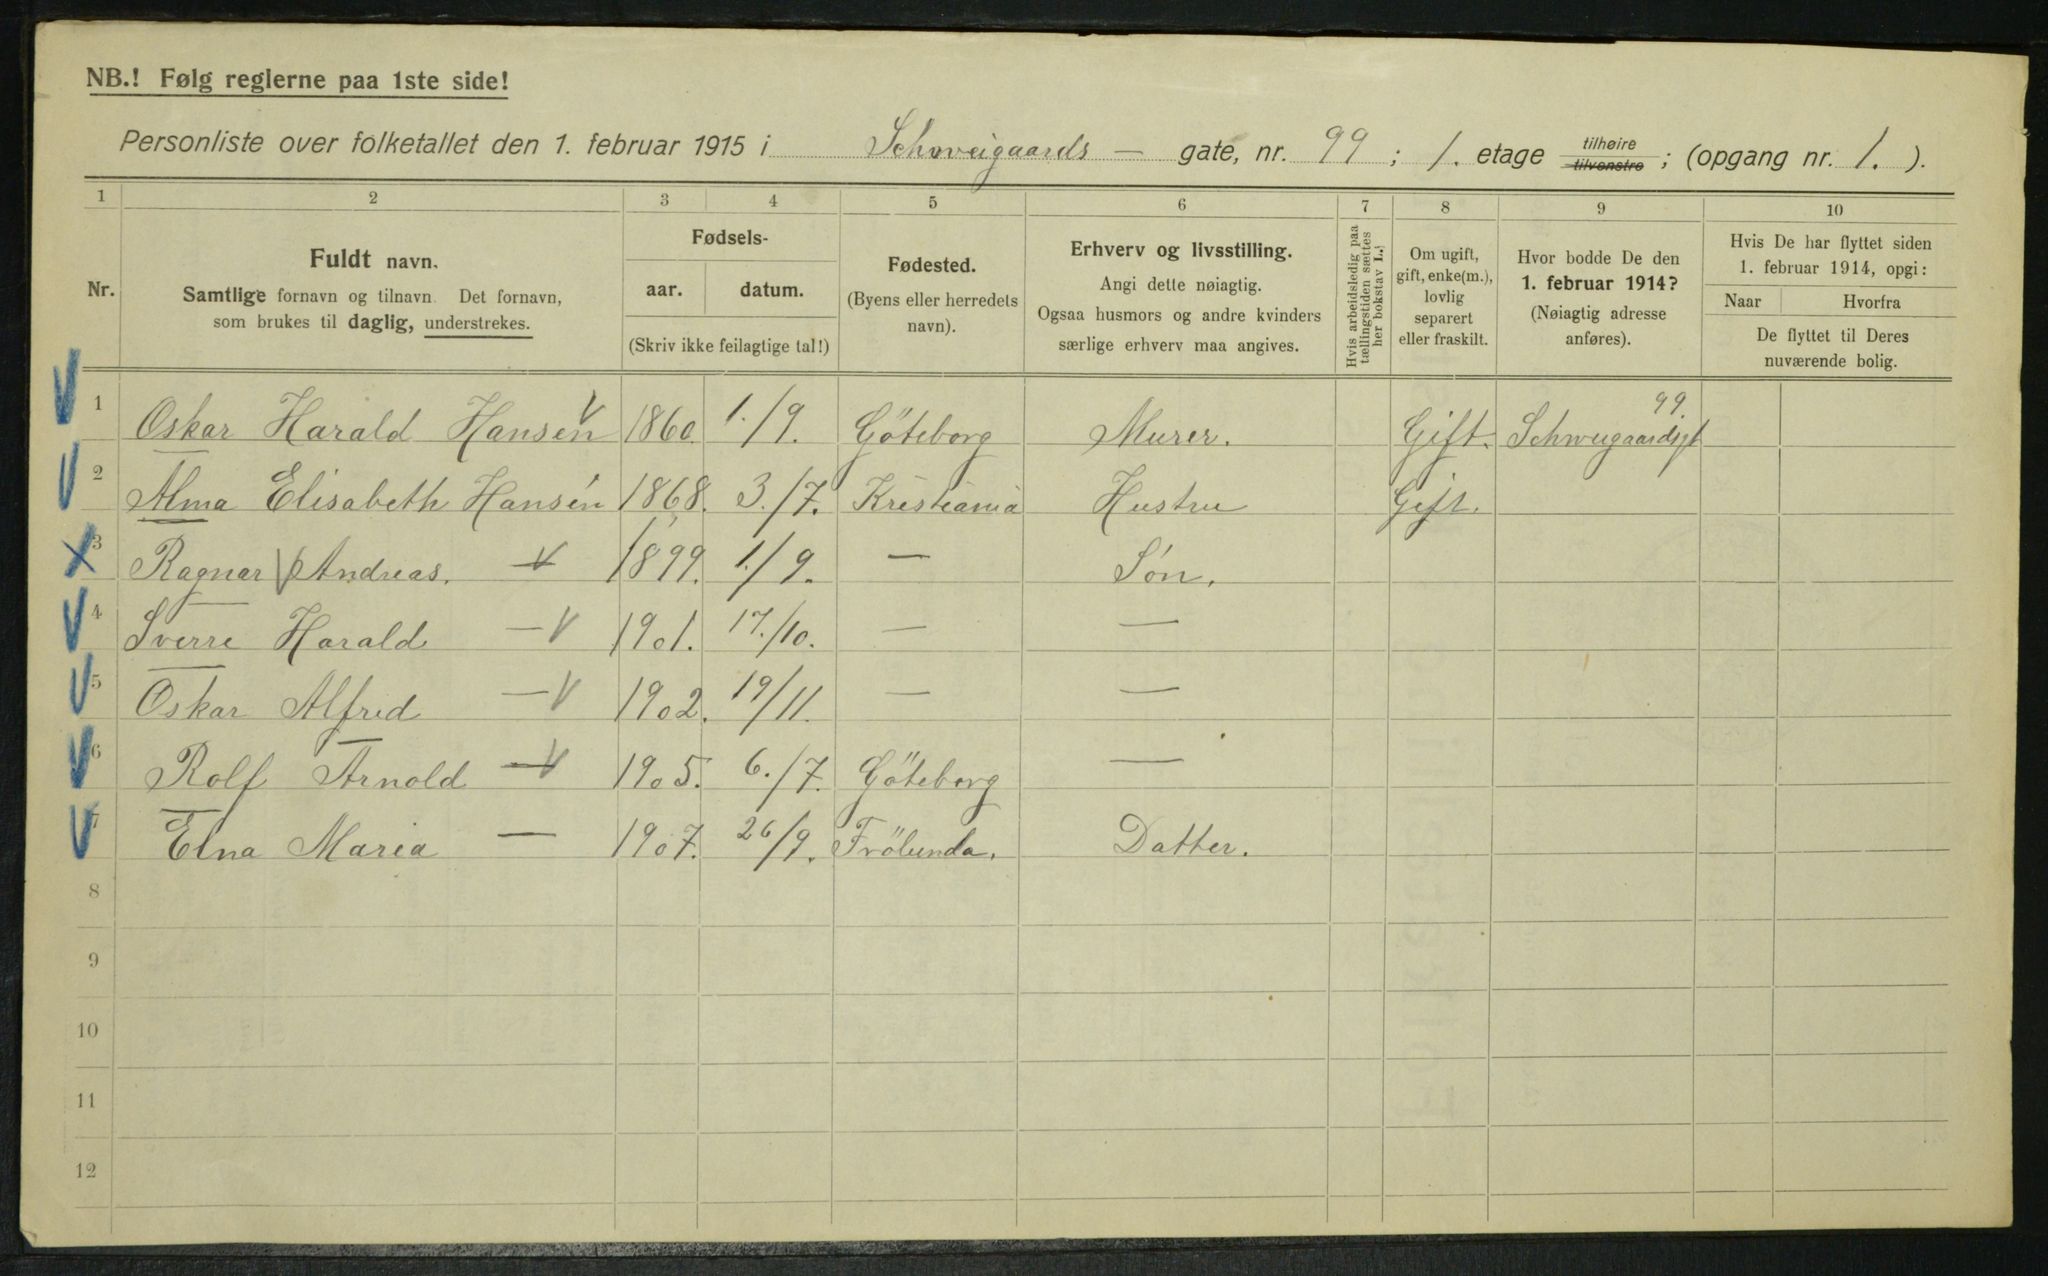 NB.! Følg reglerne paa 1ste side!
Personliste over folketallet den 1. februar 1915 i Schweigaards — gate, nr. 99 ; 1. etage tilhøire tilvenstre ; (opgang nr. 1. ).
1 2 3 4 5 6 7 8 9 10
Nr.
Fuldt navn.
Samtlige fornavn og tilnavn. Det fornavn,
som brukes til daglig, understrekes.
Fødsels-
aar. datum.
(Skriv ikke feilagtige tal!)
Fødested.
(Byens eller herredets
navn).
Erhverv og livsstilling.
Angi dette nøiagtig.
Ogsaa husmors og andre kvinders
særlige erhverv maa angives.
Hvis arbeidsledig paa
tællingstiden sættes
her bokstav L.
Om ugift,
gift, enke(m.),
lovlig
separert
eller fraskilt.
Hvor bodde De den
1. februar 1914?
(Nøiagtig adresse
anføres).
Hvis De har flyttet siden
1. februar 1914, opgi:
Naar Hvorfra
De flyttet til Deres
nuværende bolig.
1 Oskar Harald Hansén 1860 1./9. Göteborg Murer. Gift. Schweigaardsgt 99.
2 Alma Elisabeth Hansén 1868. 3./7. Kristiania Hustru Gift.
3 Ragnar Andreas. — 1899. 1./9. — Søn.
4 Sverre Harald — 1901. 17./10. — —
5 Oskar Alfred — 1902. 19/11. — —
6 Rolf Arnold — 1905. 6./7. Göteborg —
7 Elna Maria — 1907. 26/9. Frölunda. Datter.
8
9
10
11
12